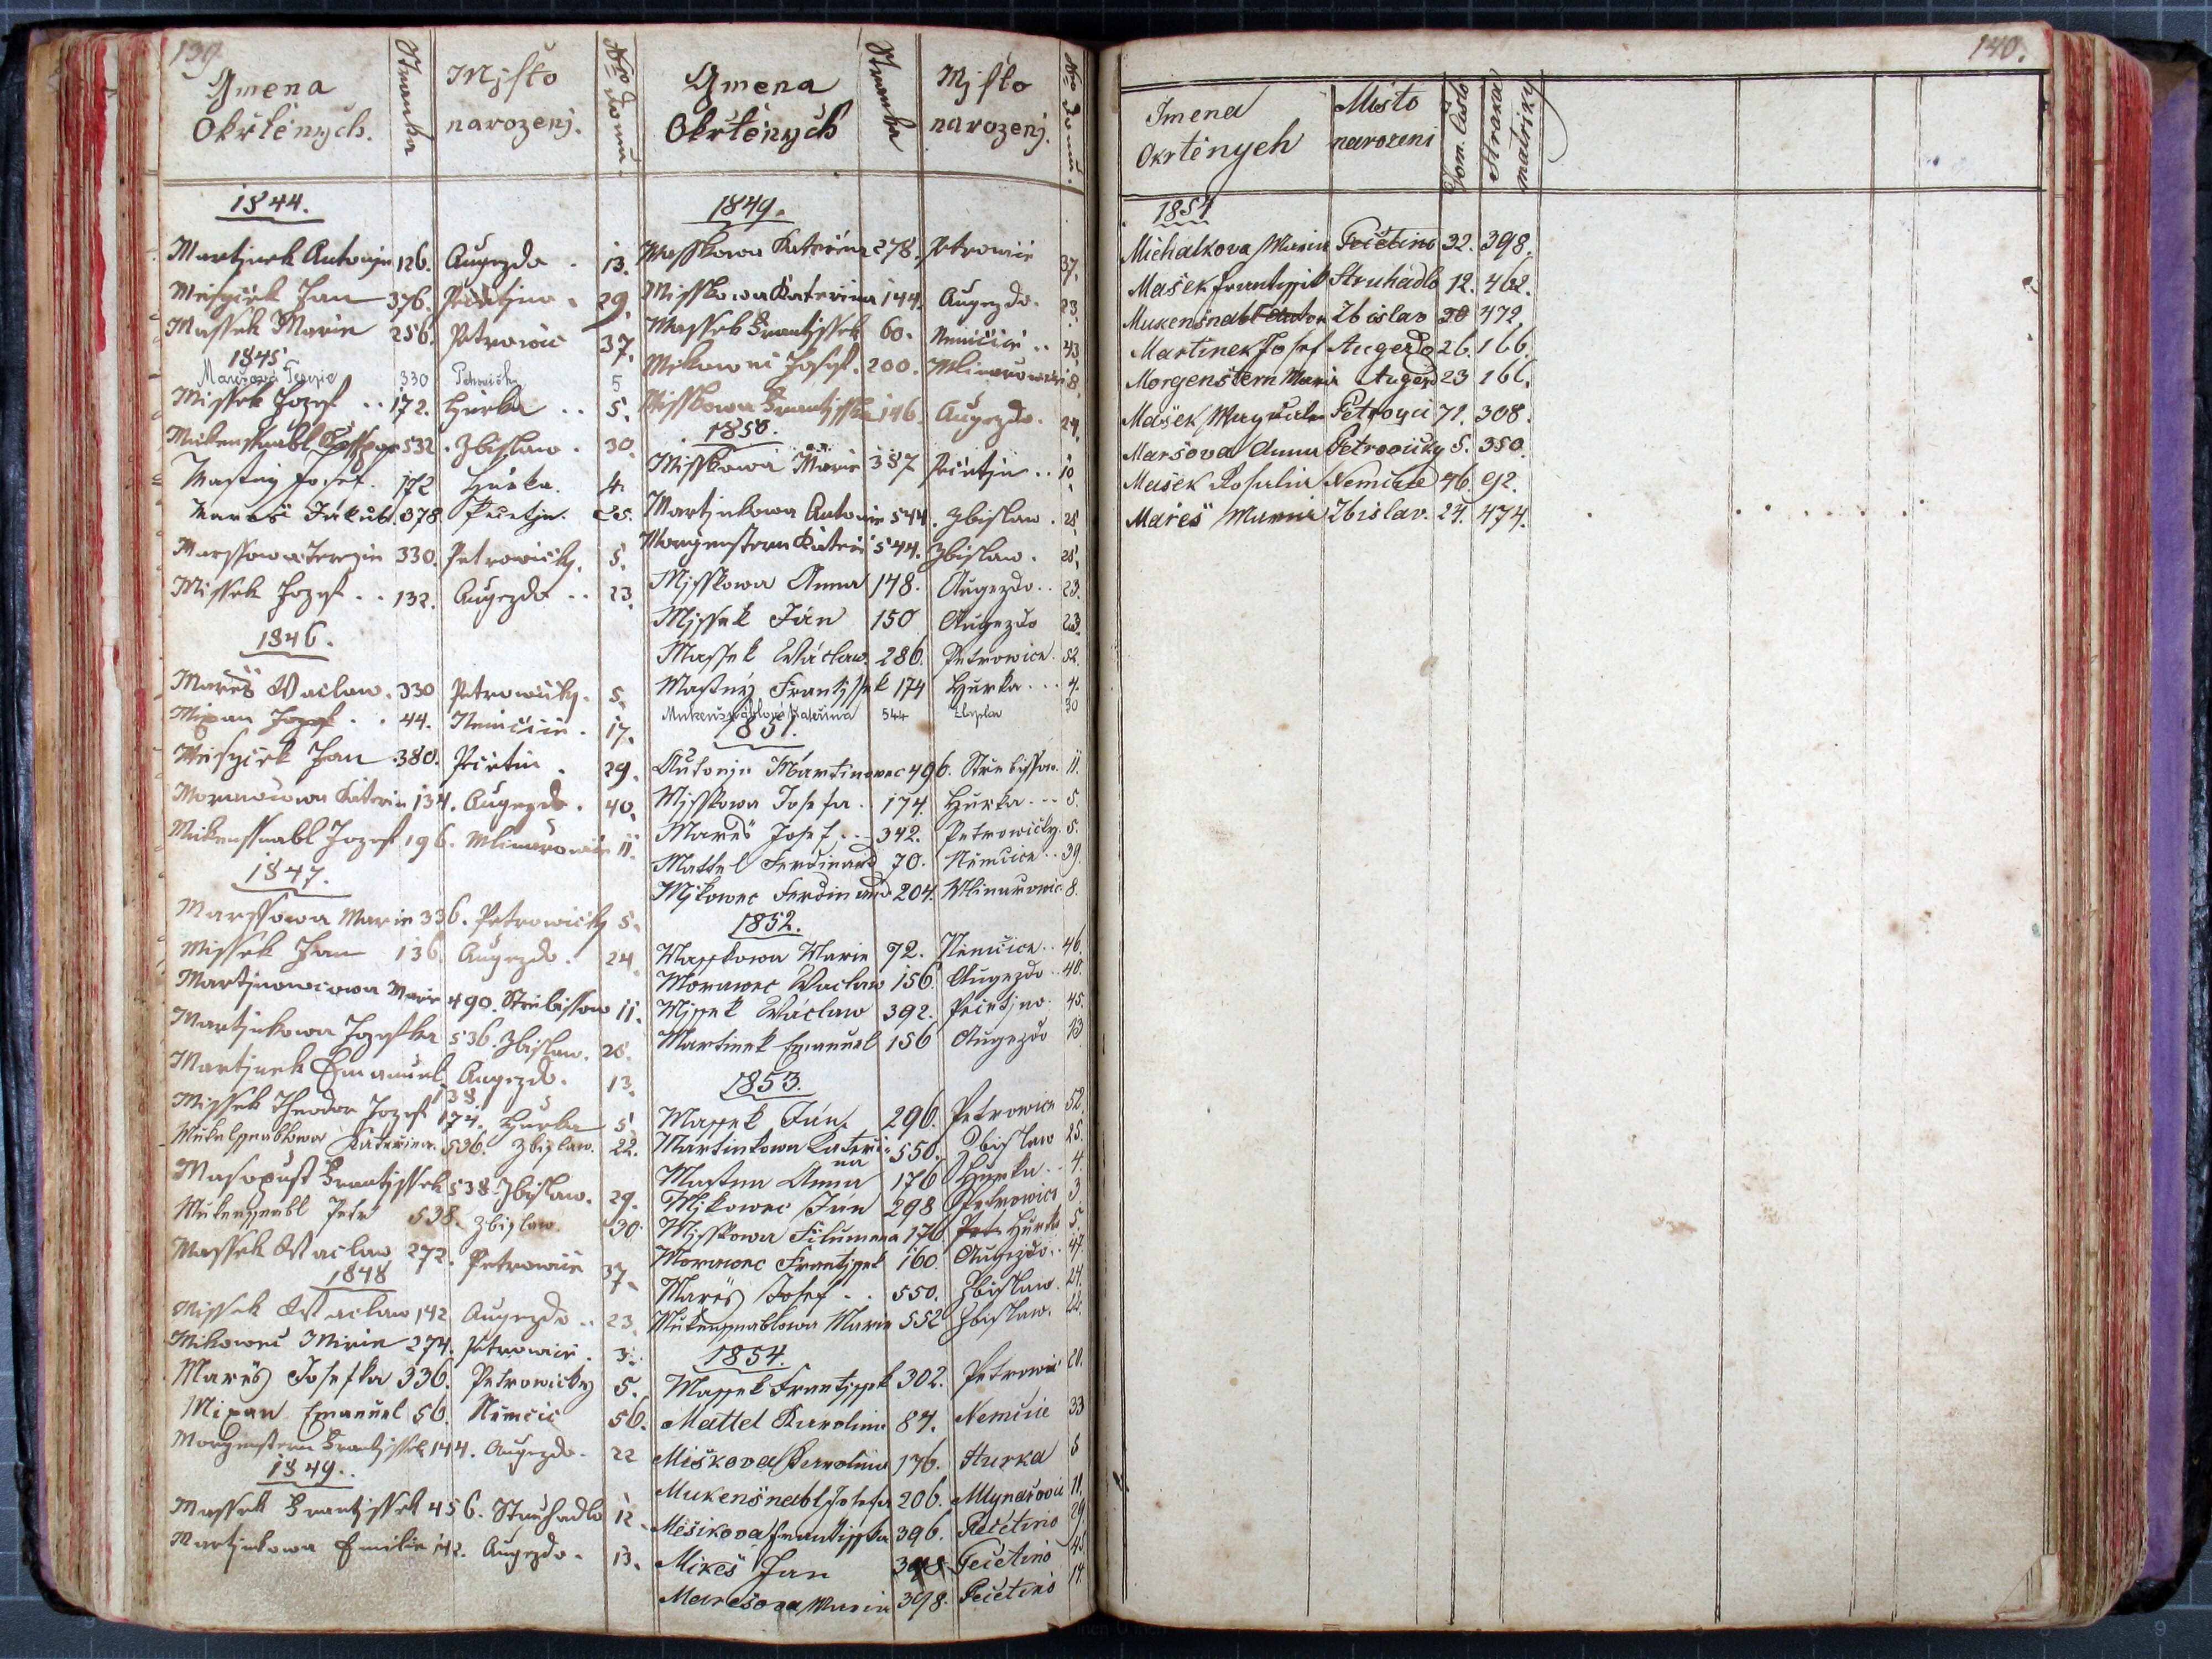 139
Gmena Okřtěných. Stranka Mjsto narozenj. Nro domu.
1844.
Martjnek Antonjn 126. Augezdo 13.
Jan 376. 29.
Massek Marie 256. Petrowic 37.
1845
Terezie 330 Petrowičky 5
Missek Jozef 172. Hurka 5.
Mukensnabl 532. Zbislaw 30.
Mastny Josef 172 Hurka. 4.
Mareš Jakub. 378 Pečetjn. 25.
Marssowa Terezie 330. Petrowičky. 5.
Missek Jozef 132. Augezdo 23.
1846.
Mareš Waclaw. 330 Petrowičky. 5.
Mixan Jozef 44. Němčic. 17.
Jan 380. Pečetin. 29.
Morawcowa Kateřin 134. Augezdo. 40.
Mukenssnabl Jozef 196. Mlinarowic 11.
1847.
Marssowa Marie 336. Petrowičky 5.
Missek Jan 136. Augezdo. 24.
Martjnowcowa Marie 490. Strebissow 11.
Martjnkowa Jozefka 536. Zbislaw. 25.
Martjnek Emanuel 138. Augezdo. 13.
Missek Theodor Jozef 174. Hurka 5
Kateřina. 536. Zbislaw. 22.
Masopust Frantjssek 538. Zbislaw. 29.
Petr 538. Zbislaw. 30.
Massek Waclaw 272. Petrowic 37.
1848
Missek Waclaw 142 Augezdo 23.
Mikowec Marie 274. Petrowic. 3.
Mareš Josefka 336. Petrowicky 5.
Mixan Emanuel 56. Němčic 56.
Morgenstern Frantjssek 144. Augezdo. 22
1849.
Massek Frantjssek 456. Struhadlo 12
Martjnkowa Emilie 142. Augezdo. 13.
Gmena Okřtěných Stranka Mjsto narozenj. Nro domu.
1849.
Masskowa Kateřina 278. Petrowic 37.
Misskowa Kateřina 144. Augezdo. 23.
Massek Frantjssek 60. Němčic 43.
Mikowec Josef. 200. Mlinarowic 8.
Misskowa Frantjsska 146. Augezdo. 24.
1850.
Misskowa Marie 387 Pečetjn 10
Martjnkowa Antonie 544. Zbislaw. 25
Morgenstern Kateři 544. Zbislaw. 25.
Mjsskowa Anna 148. Augezdo. 23.
Mjssek Ján 150 Augezdo 23.
Massek Wáclaw 286. Petrowice. 52.
Mastný Frantjssek 174 Hurka 4.
Mukenšnáblová Kateřina 544 Zbislav 30
1851.
Antonje Martinowec 496. Strebissow. 11.
Mjsskowa Josefa. 174. Hurka 5.
Mareš Josef 342. Petrowičky. 5.
Mattel Ferdinand 70. Němčice 39.
Mjkowec Ferdinand 204. Mlinarowic 8.
1852.
Masskowa Marie 72. Němčice 46.
Morawec Waclaw 156. Augezdo 40.
Mjssek Wáclaw 392. Pečetjno. 45.
Martinek Emanuel 156 Augezdo 13
1853.
Massek Ján. 296. Petrowice 52.
Martinkowa Kateřina 550. Zbislaw 25.
Mastna Anna 176 Hurka 4.
Mjkowec Ján 298 Petrowice 3.
Mjsskowa Filumena 176 Pet. Hurka 5.
Morawec Frantjssek 160. Augezdo 47.
Mareš Josef 550. Zbislaw. 24.
Mukenssnablowa Marie 552 Zbislaw. 22.
1854.
Massek Frantjssek 302. Petrowic 20.
Mattel Karolina 84. Nemčic 33
Miškova Karolina 176. Hurka 5
Mukenšnabl Josefa 206. Mlynařovic 11.
Mešikova Frantisska 396. Pečetino 29.
Mikeš Jan 398 Pečetino 45.
Marešova Maria 398. Pečetino 14.
140.
Jmena Okrtěnych Místo narozeni Dom. Čislo Stranka matriky
1854
Michalkova Maria Pečetino 32. 398.
Mašek Frantissek Struhadlo 12. 462.
Mukenšnabl Anton Zbislav 30 472.
Martinek Josef Augezdo 26. 166.
Morgenstern Maria Augezd 23 166.
Mašek Magdalen Petrovici 71. 308.
Maršova Anna Petrovičky 5. 350.
Mašek Rosalia Nemčice 46. 92.
Mareš Maria Zbislav. 24. 474.